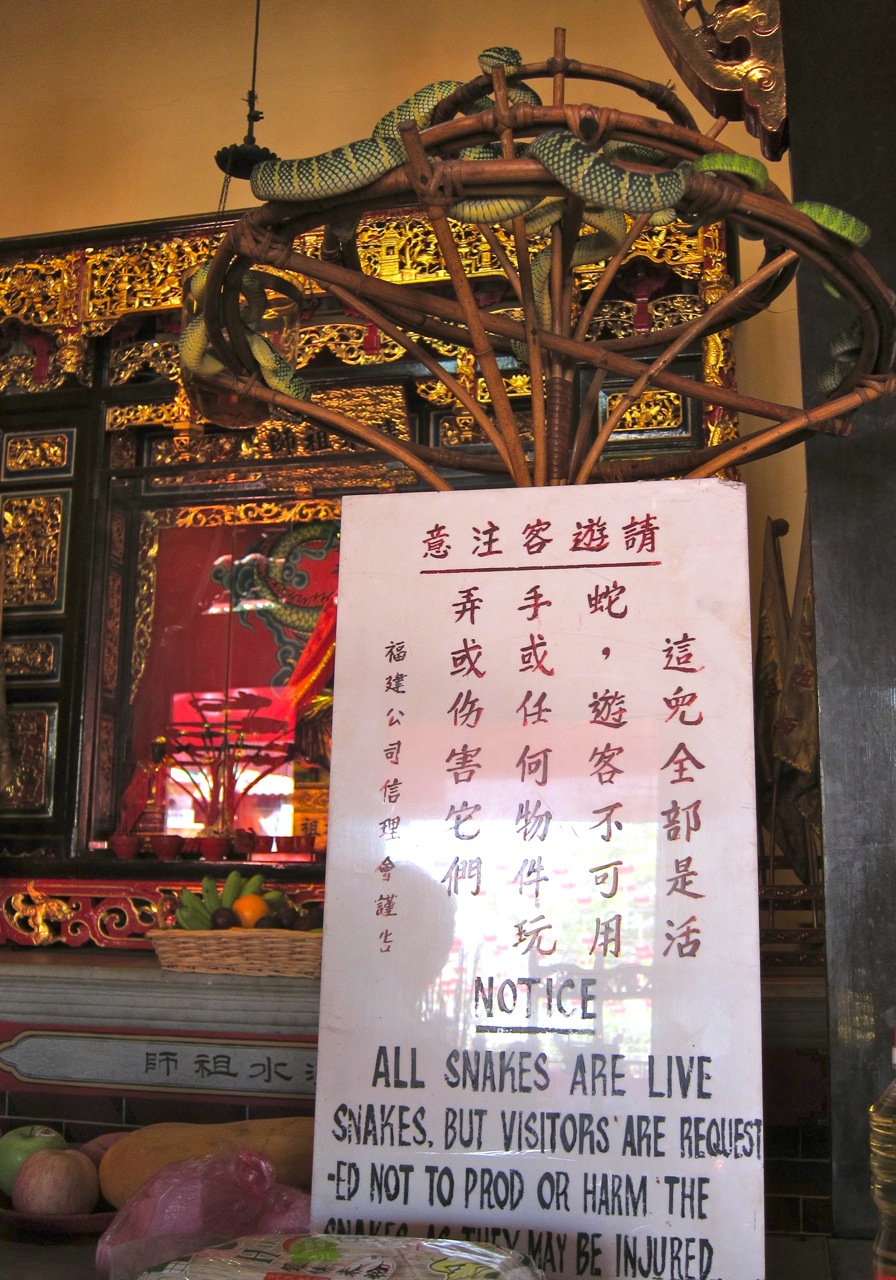 請遊客注意
這兒全部是活
蛇，遊客不可用
手或任何物件玩
弄或伤害它們
福建公司信理會謹
NOTICE
ALL SNAKES ARE LIVE
SNAKES, BUT VISITORS ARE REQUEST
-ED NOT TO PROD OR HARM THE
SNAKES AS THEY MAY BE INJURED
祖師
水祖師
祖